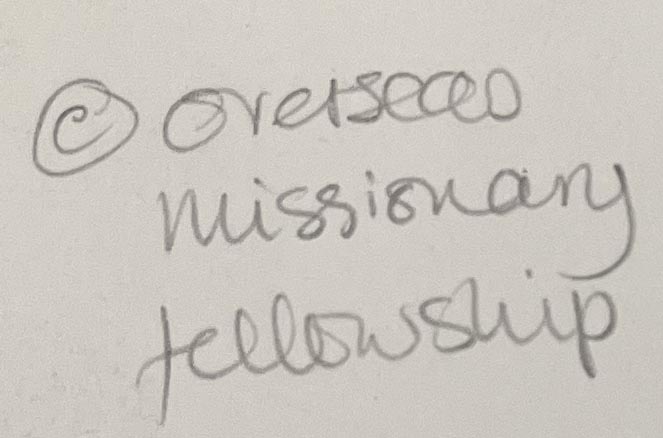 © overseas
missionary
fellowship